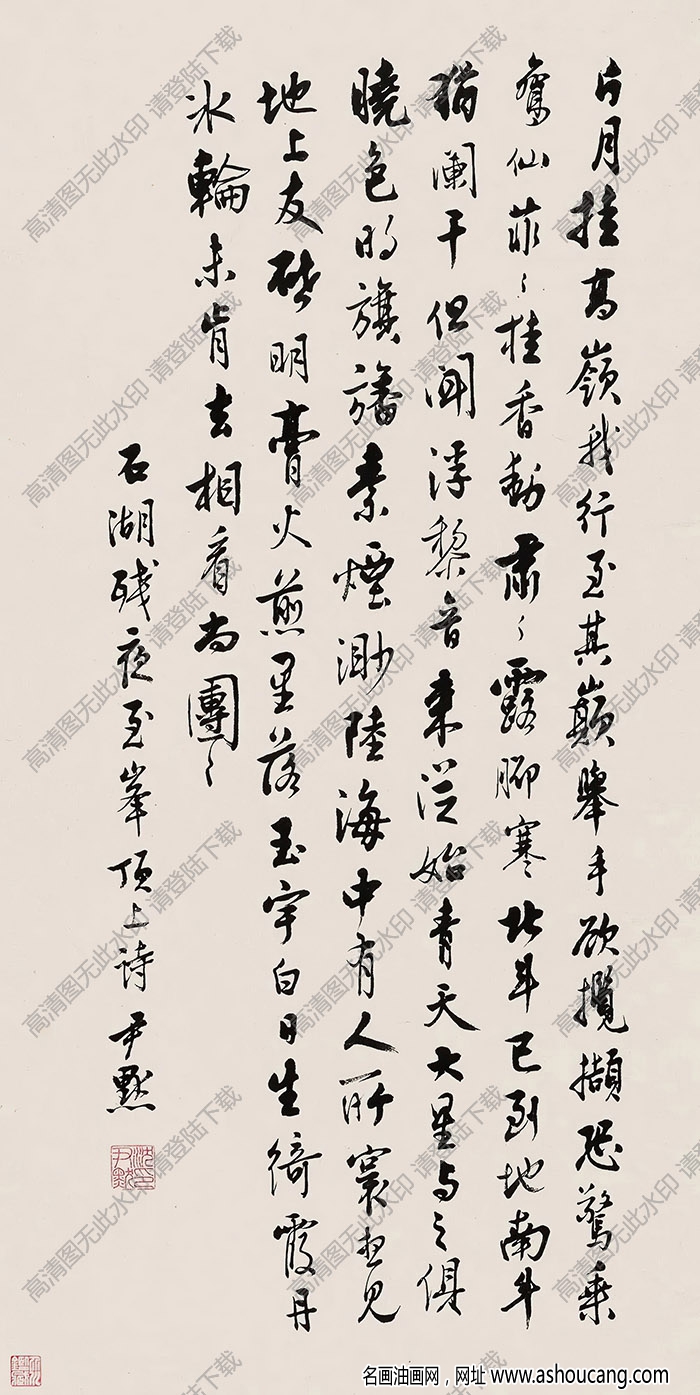 白月挂高嶺我行至其巔舉手欲攬擷恐驚乘
鸞仙菲〻桂香動肅〻露腳寒北斗已到地南斗
猶瀾干但聞浮黎音来從始青天大星与之俱
曉色明旗旛素煙渺陸海中有人所寰想見
地上友啓明膏火煎星落玉宇白日生綺霞丹
冰輪未肯去相看尚團〻
石湖殘夜至峯頂上詩 尹默
高清图无此水印 请登陆下载
名画油画网，网址 www.ashoucang.com